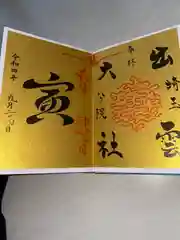 奉拝
出雲
埼玉
大社
分院
寅
令和四年
九月
日